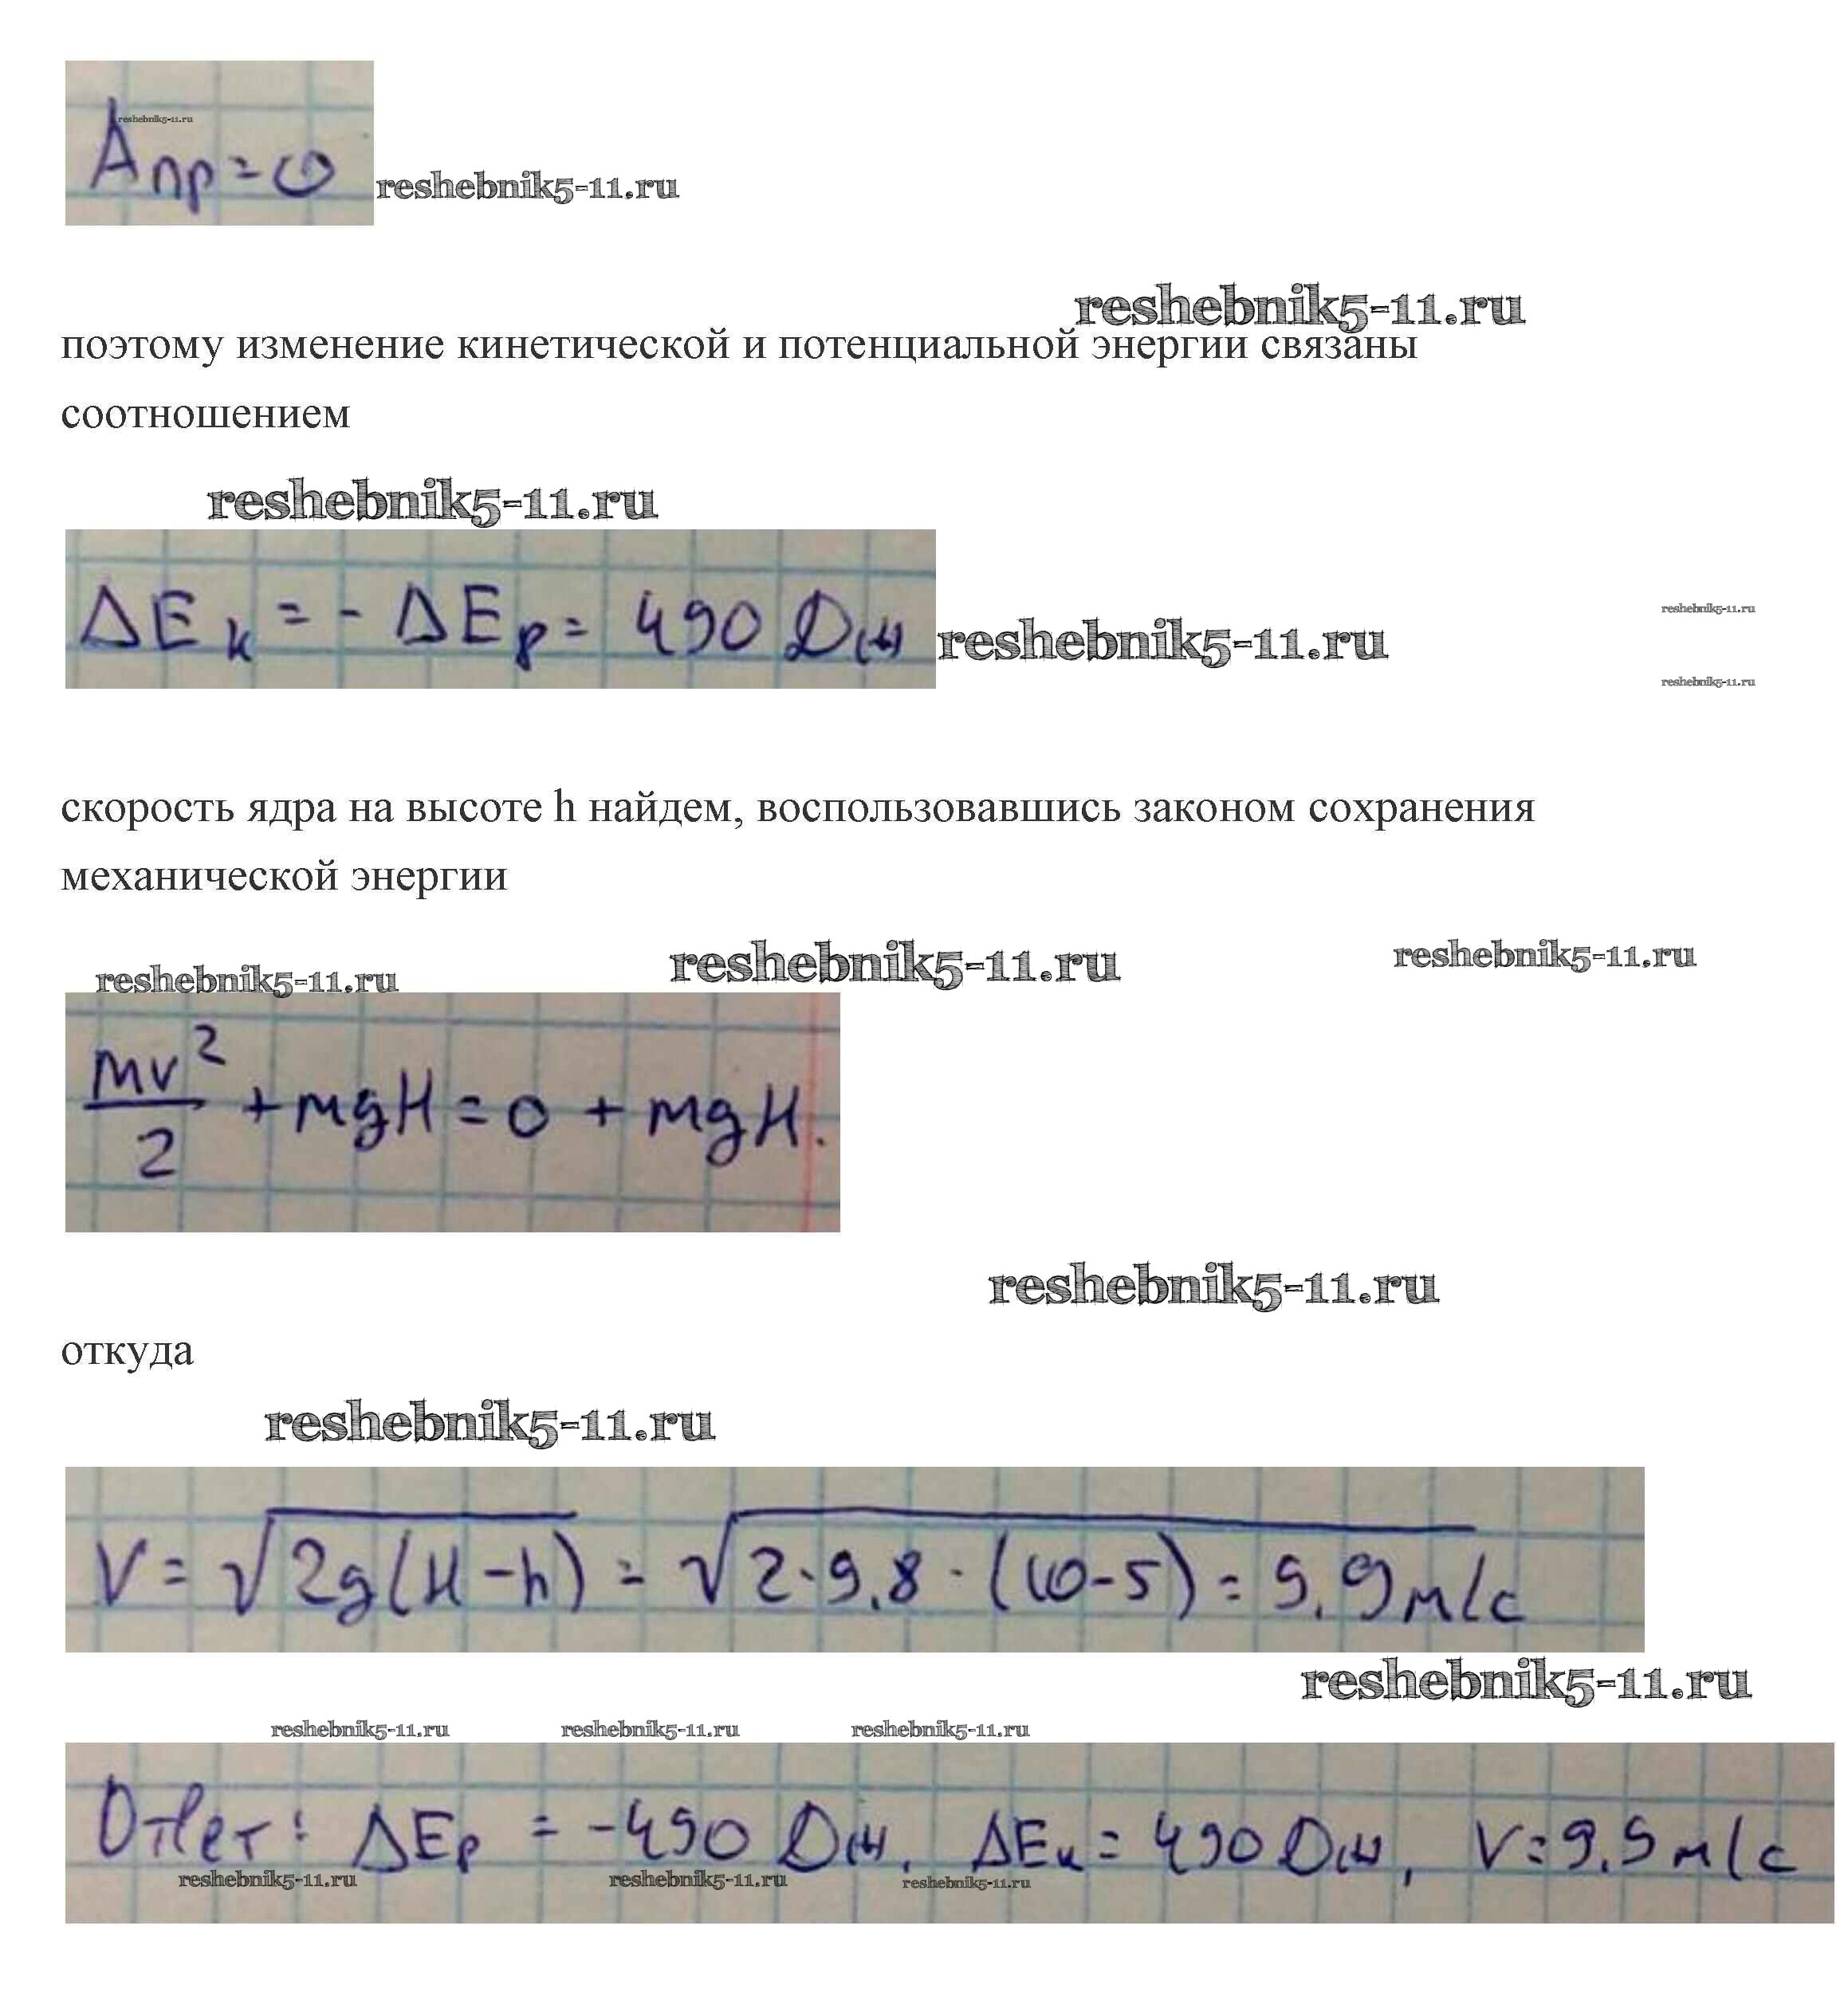 reshebnik5-11.ru
Aпр=0
reshebnik5-11.ru
reshebnik5-11.ru
поэтому изменение кинетической и потенциальной энергии связаны
соотношением
reshebnik5-11.ru
ΔEк = - ΔEp = 490 Дж
reshebnik5-11.ru
reshebnik5-11.ru
reshebnik5-11.ru
скорость ядра на высоте h найдем, воспользовавшись законом сохранения
механической энергии
reshebnik5-11.ru reshebnik5-11.ru reshebnik5-11.ru
mv²/2 + mgH = 0 + mgH.
reshebnik5-11.ru
откуда
reshebnik5-11.ru
V = √2g(H-h) = √2·9,8·(10-5) = 9,9 м/с
reshebnik5-11.ru
reshebnik5-11.ru reshebnik5-11.ru reshebnik5-11.ru
Ответ: ΔEp = -490 Дж, ΔEк = 490 Дж, V = 9,9 м/с
reshebnik5-11.ru reshebnik5-11.ru reshebnik5-11.ru